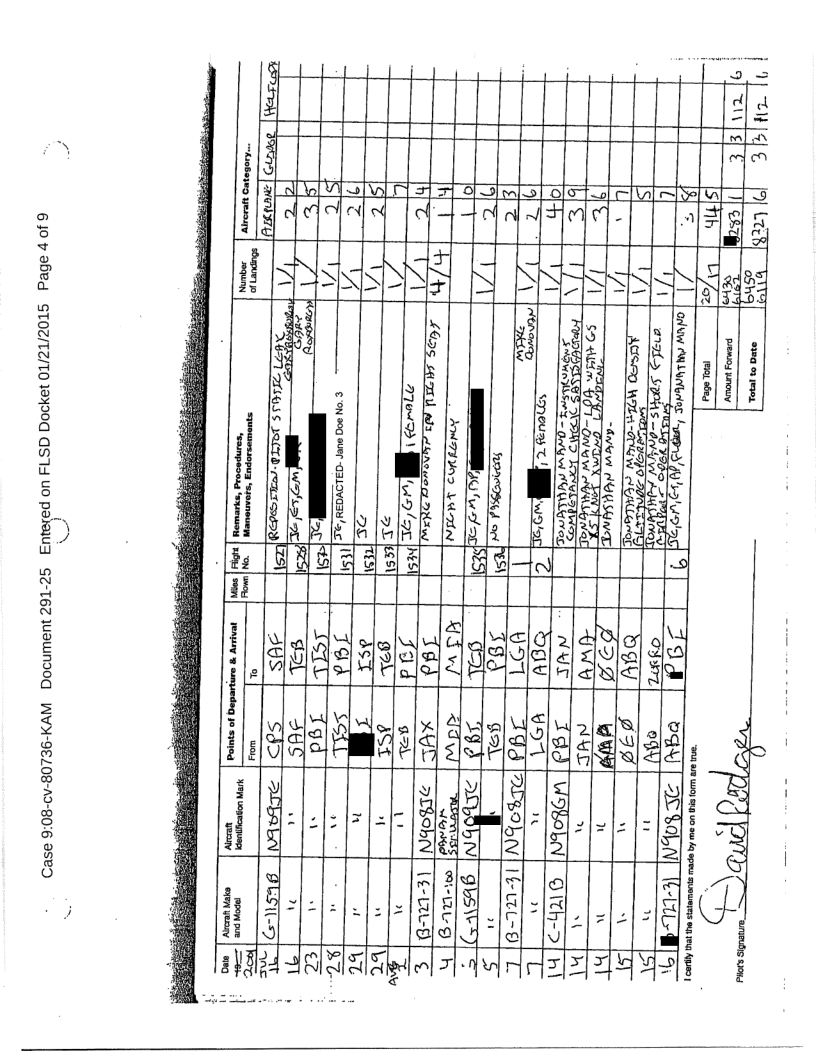 Case 9:08-cv-80736-KAM Document 291-25 Entered on FLSD Docket 01/21/2015 Page 4 of 9
Date 2001 Aircraft Make and Model Aircraft Identification Mark Points of Departure & Arrival From To Miles Flown Flight No. Remarks, Procedures, Maneuvers, Endorsements Number of Landings Aircraft Category... AIRPLANE GLIDER HELICOPT
JUL 16 G-1159B N909JE CPS SAF 1527 REPOSITION. PITOT STATIC LEAK 1/1 2 2
16 " " SAF TEB 1528 JE, ET, GM, GARY ROXBURGH 1/ 3 5
23 " " PBI TIST JE, 1/1 2 5
28 " " TIST PBI 1531 JE, REDACTED- Jane Doe No. 3 1/1 2 6
29 " " ISP 1532 JE 1/1 2 5
29 " " ISP TEB 1533 JE 1/1 7
AUG " " TEB PBI 1534 JE, GM, 1 FEMALE 1/1 2 4
3 B-727-31 N908JE JAX PBI MIKE DONOVAN IN RIGHT SEAT 4/4 1 4
4 B-727-100 PANAM SIMULATOR MIA NIGHT CURRENCY 1 0
5 G-1159B N909JE PBI TEB 1535 JE, GM, AP, 1/1 2 6
5 " " TEB PBI 1536 NO PASSENGERS 2 3
7 B-727-31 N908JE PBI LGA 1 MIKE DONOVAN 1/1 2 6
7 " " LGA ABQ 2 JE, GM, 12 FEMALES 1/1 4 0
14 C-421B N908GM PBI JAN JONATHAN MANO-INSTRUMENT COMPETANCY CHECK SATISFACTORY 1/1 3 9
14 " " JAN AMA JONATHAN MANO- LDA WITH GS XS KNOT XWIND - LANDING 1/1 3 6
14 " " 0E0 JONATHAN MANO. 1/1 7
15 " " 0E0 ABQ JONATHAN MANO-HIGH DENSITY ALTITUDE OPERATIONS 1/1 5
15 " " ABQ ZORRO JONATHAN MANO-SHORT FIELD AIRPORT OPERATIONS 1/1 7
16 B-727-31 N908JE ABQ PBI 6 JE, GM, ET, AP, JONANATHAN MANO 1/ 3 8
I certify that the statements made by me on this form are true.
Page Total 20/17 44 5
Amount Forward 6430 6102 8283 1 3 3 112 6
Total to Date 6450 6119 8327 6 3 3 112 6
Pilot's Signature David Rodgers